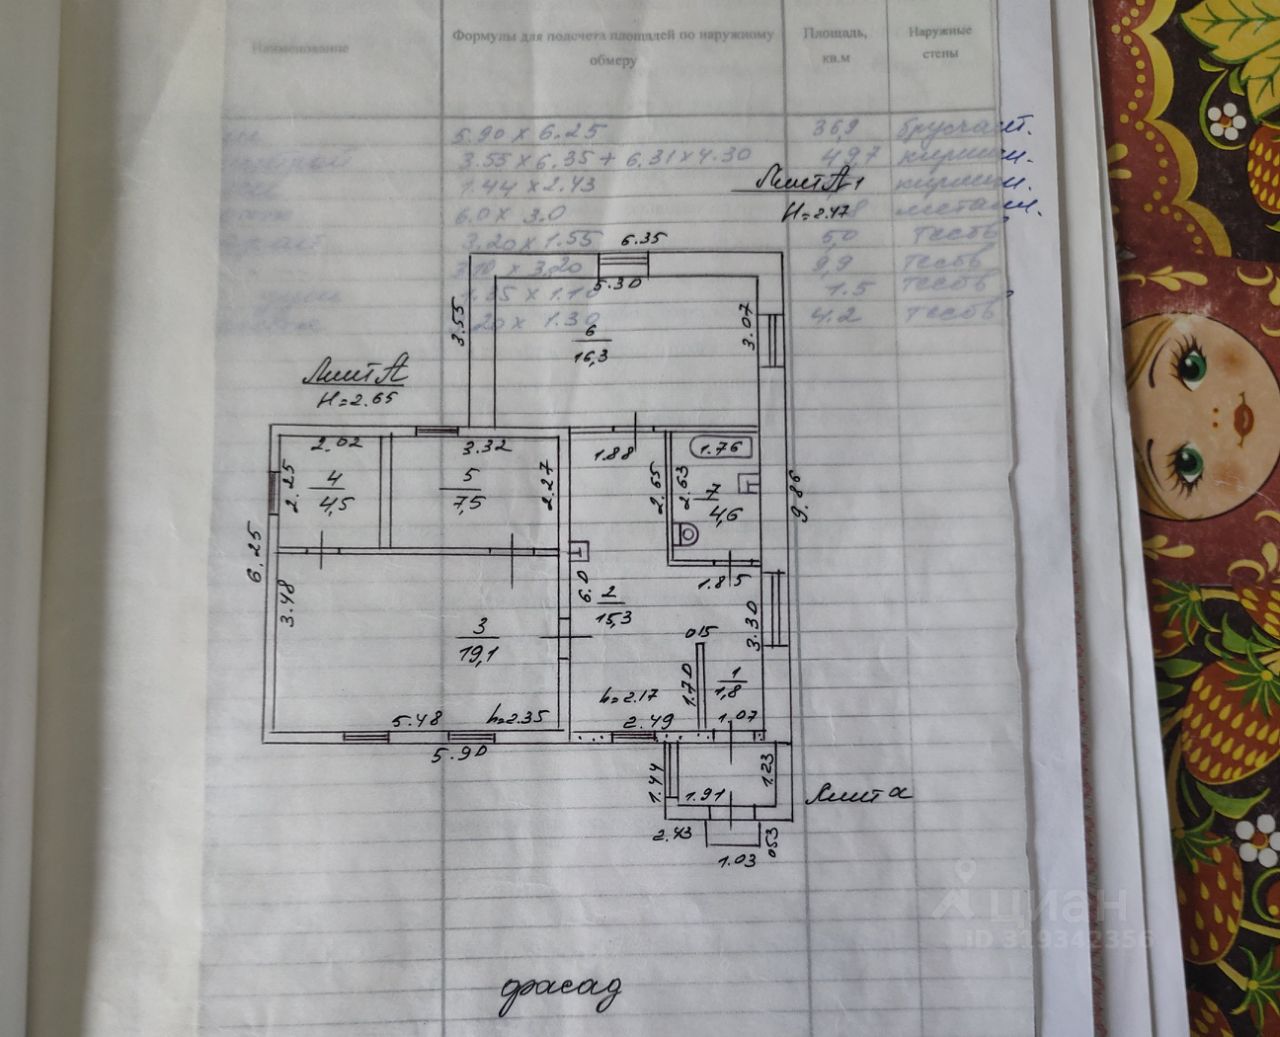 Наименование
Формулы для подсчета площадей по наружному обмеру
Площадь, кв.м
Наружные стены
5.90 х 6.25 36,9
3.55 х 6.35 + 6.31 х 4.30 49,7
1.44 х 2.43
6.0 х 3.0
3.20 х 1.55 5,0 тесов
3.10 х 3.20 9,9 тесов
1.35 х 1.10 1.5 тесов
20 х 1.30 4.2 тесов
Лит А1
H=2.47
6.35
5.30
3.55
6
16,3
3.07
Лит А
H=2.65
2.02
3.32
1.88
1.76
2.25
4
4,5
5
7,5
2.27
2.65
2.63
7
4,6
9.86
6.25
3.48
6.0
2
15,3
1.85
3.30
3
19,1
015
1.70
1
1,8
h=2.17
5.48
h=2.35
2.49
1.07
5.90
1.44
1.91
1.23
Лит а
2.43
1.03
053
циан
ID 319342356
фасад